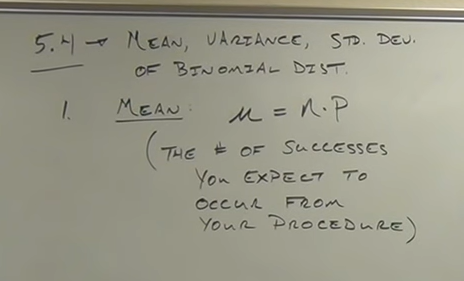 5.4 → MEAN, VARIANCE, STD. DEV.
OF BINOMIAL DIST.
1. MEAN: μ = n·P
(THE # OF SUCCESSES
YOU EXPECT TO
OCCUR FROM
YOUR PROCEDURE)